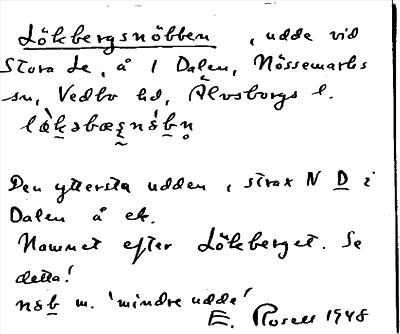 Lökbergsnöbben, udde vid
Stora Le, å 1 Dalen, Nössemarks
sn, Vedbo hd, Älvsborgs l.
Den yttersta udden, strax N D i
Dalen å ek.
Namnet efter Lökberget. Se
detta!
nöb m. 'mindre udde'
E. Rosell 1948